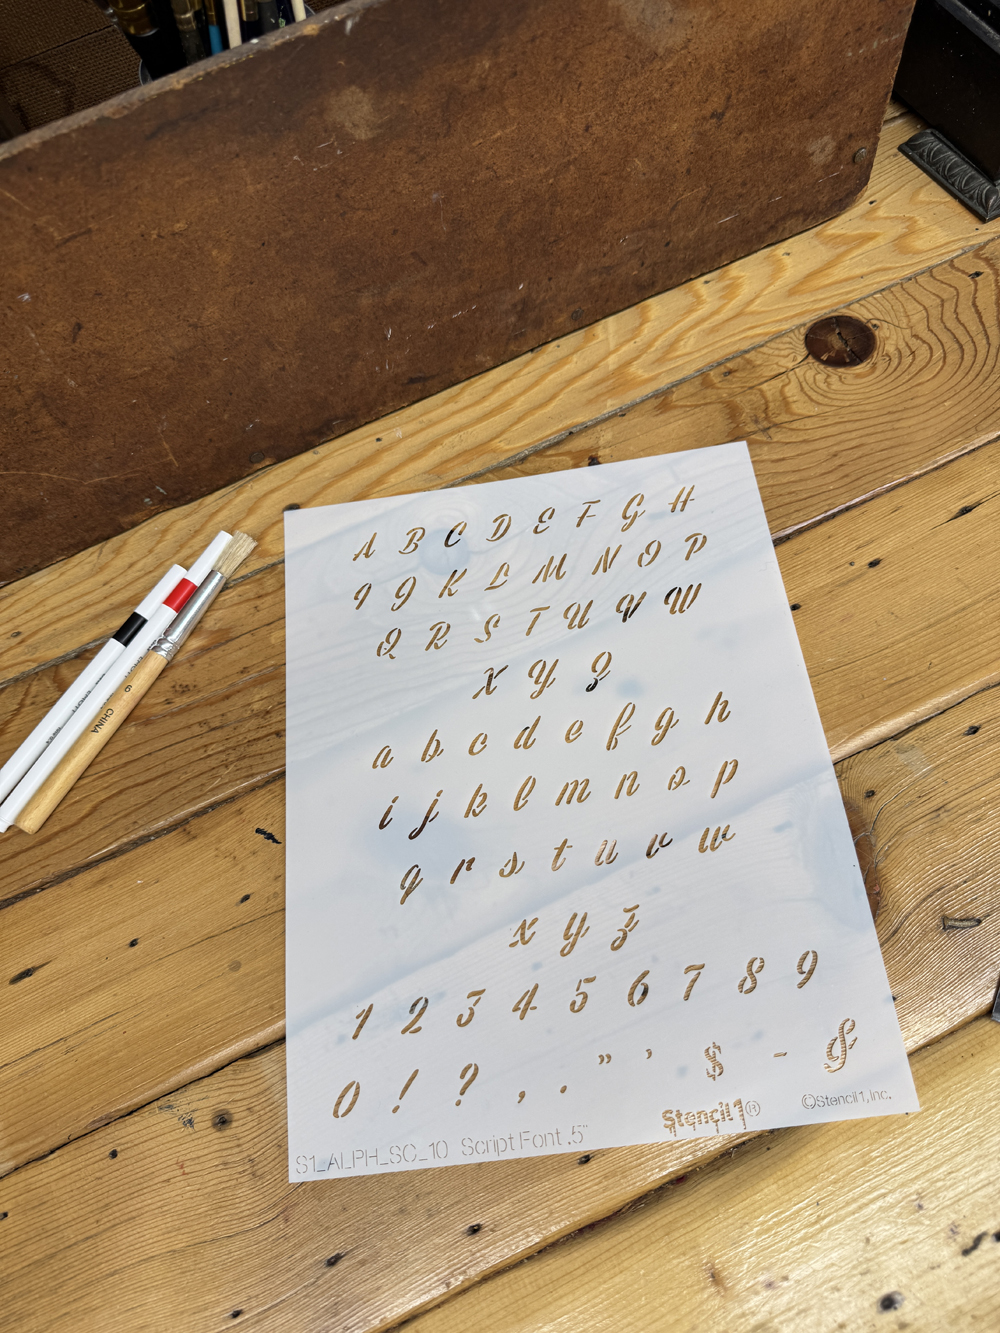 A B C D E F G H
I J K L M N O P
Q R S T U V W
X Y Z
a b c d e f g h
i j k l m n o p
q r s t u v w
x y z
1 2 3 4 5 6 7 8 9
0 ! ? , . ” ’ $ - &
Stencil1®
©Stencil1, Inc.
S1_ALPH_SC_10 Script Font .5"
6 CHINA